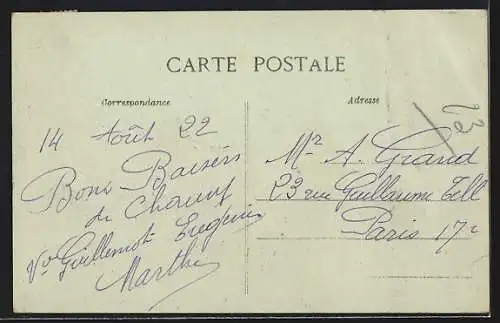 CARTE POSTALE
Correspondance
Adresse
23
14 Août 22
Bons Baisers
de Chauny
Vve Guillemot Eugénie
Marthe
Mr A. Grand
23 rue Guillaume Tell
Paris 17e